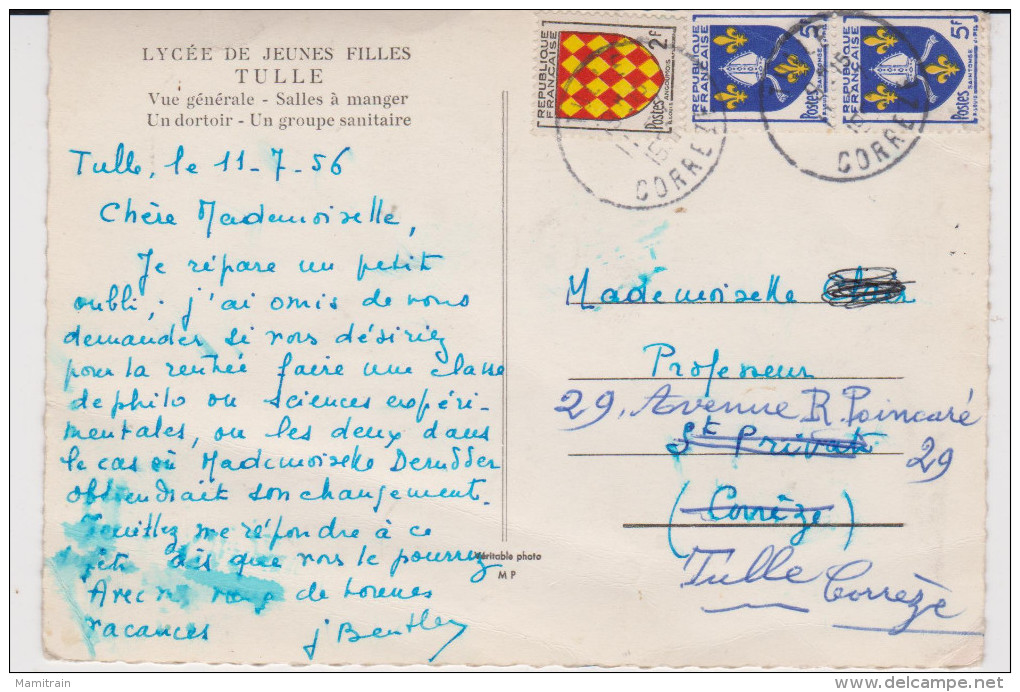 LYCÉE DE JEUNES FILLES
TULLE
Vue générale - Salles à manger
Un dortoir - Un groupe sanitaire
Tulle, le 11-7-56
Chère Mademoiselle,
Je répare un petit
oubli ; j'ai omis de vous
demander si vous désiriez
pour la rentrée faire une classe
de philo ou sciences expéri-
mentales, ou les deux dans
le cas où Mademoiselle
obtiendrait son changement.
Veuillez me répondre à ce
dès que vous le pourrez
Avec de bonnes
vacances
J Bentley
Véritable photo
M P
REPUBLIQUE FRANÇAISE
2F
Postes
ANGOUMOIS
REPUBLIQUE FRANÇAISE
5F
Postes
SAINTONGE
REPUBLIQUE FRANÇAISE
5F
Postes
SAINTONGE
CORREZE
CORREZE
Mademoiselle
Professeur
29, Avenue R. Poincaré
St Privat
29
(Corrèze)
Tulle Corrèze
Mamitrain
www.delcampe.net